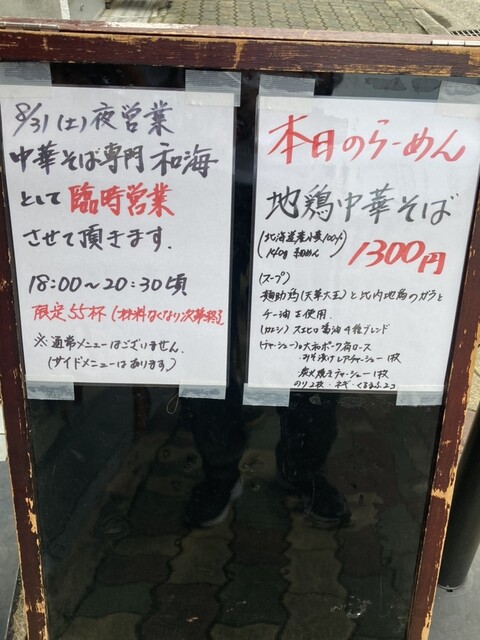 8/31(土)夜営業
中華そば専門 和海
として臨時営業
させて頂きます.
18:00〜20:30頃
限定55杯(材料なくなり次第終了)
※通常メニューはございません.
(サイドメニューはあります)
本日のらーめん
地鶏中華そば
(北海道産小麦100%
140g 細めん)
1300円
(スープ)
(天草大王)と比内地鶏のガラと
チー油を使用.
(カエシ) スエヒロ醤油4種ブレンド
(チャーシュー)大和ポーク肩ロース
みそ漬けレアチャーシュー1枚
炭火焼きチャーシュー1枚
のり2枚・ネギ・くるまふ2コ